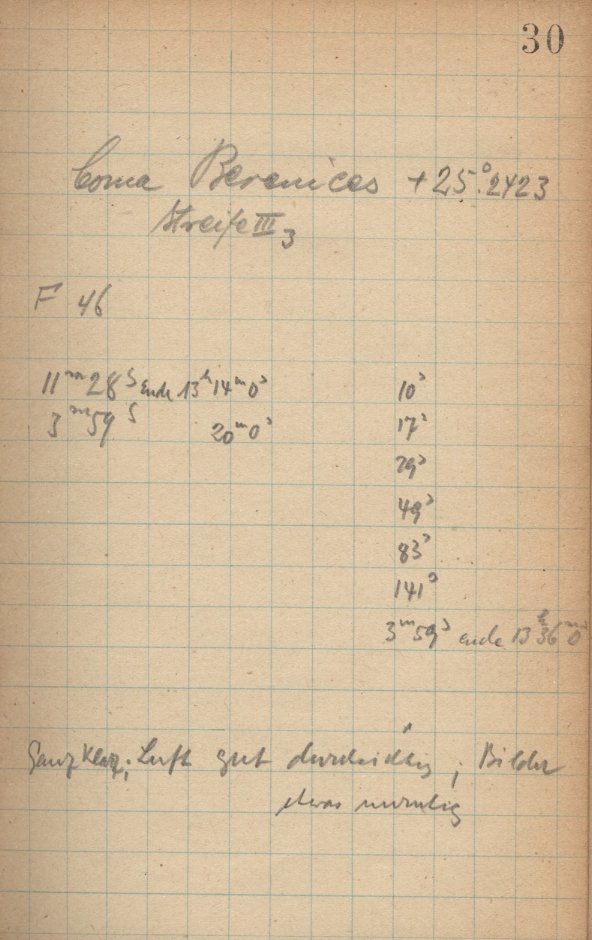 30
Coma Berenices +25°.2423
Streife III 3
F 46
11ᵐ28ˢ Ende 13ʰ14ᵐ0ˢ 10ˢ
3ᵐ59ˢ 20ᵐ0ˢ 17ˢ
29ˢ
49ˢ
83ˢ
141ˢ
3ᵐ59ˢ Ende 13ʰ36ᵐ0ˢ
Ganz klar; Luft gut durchsichtig; Bilder
etwas unruhig